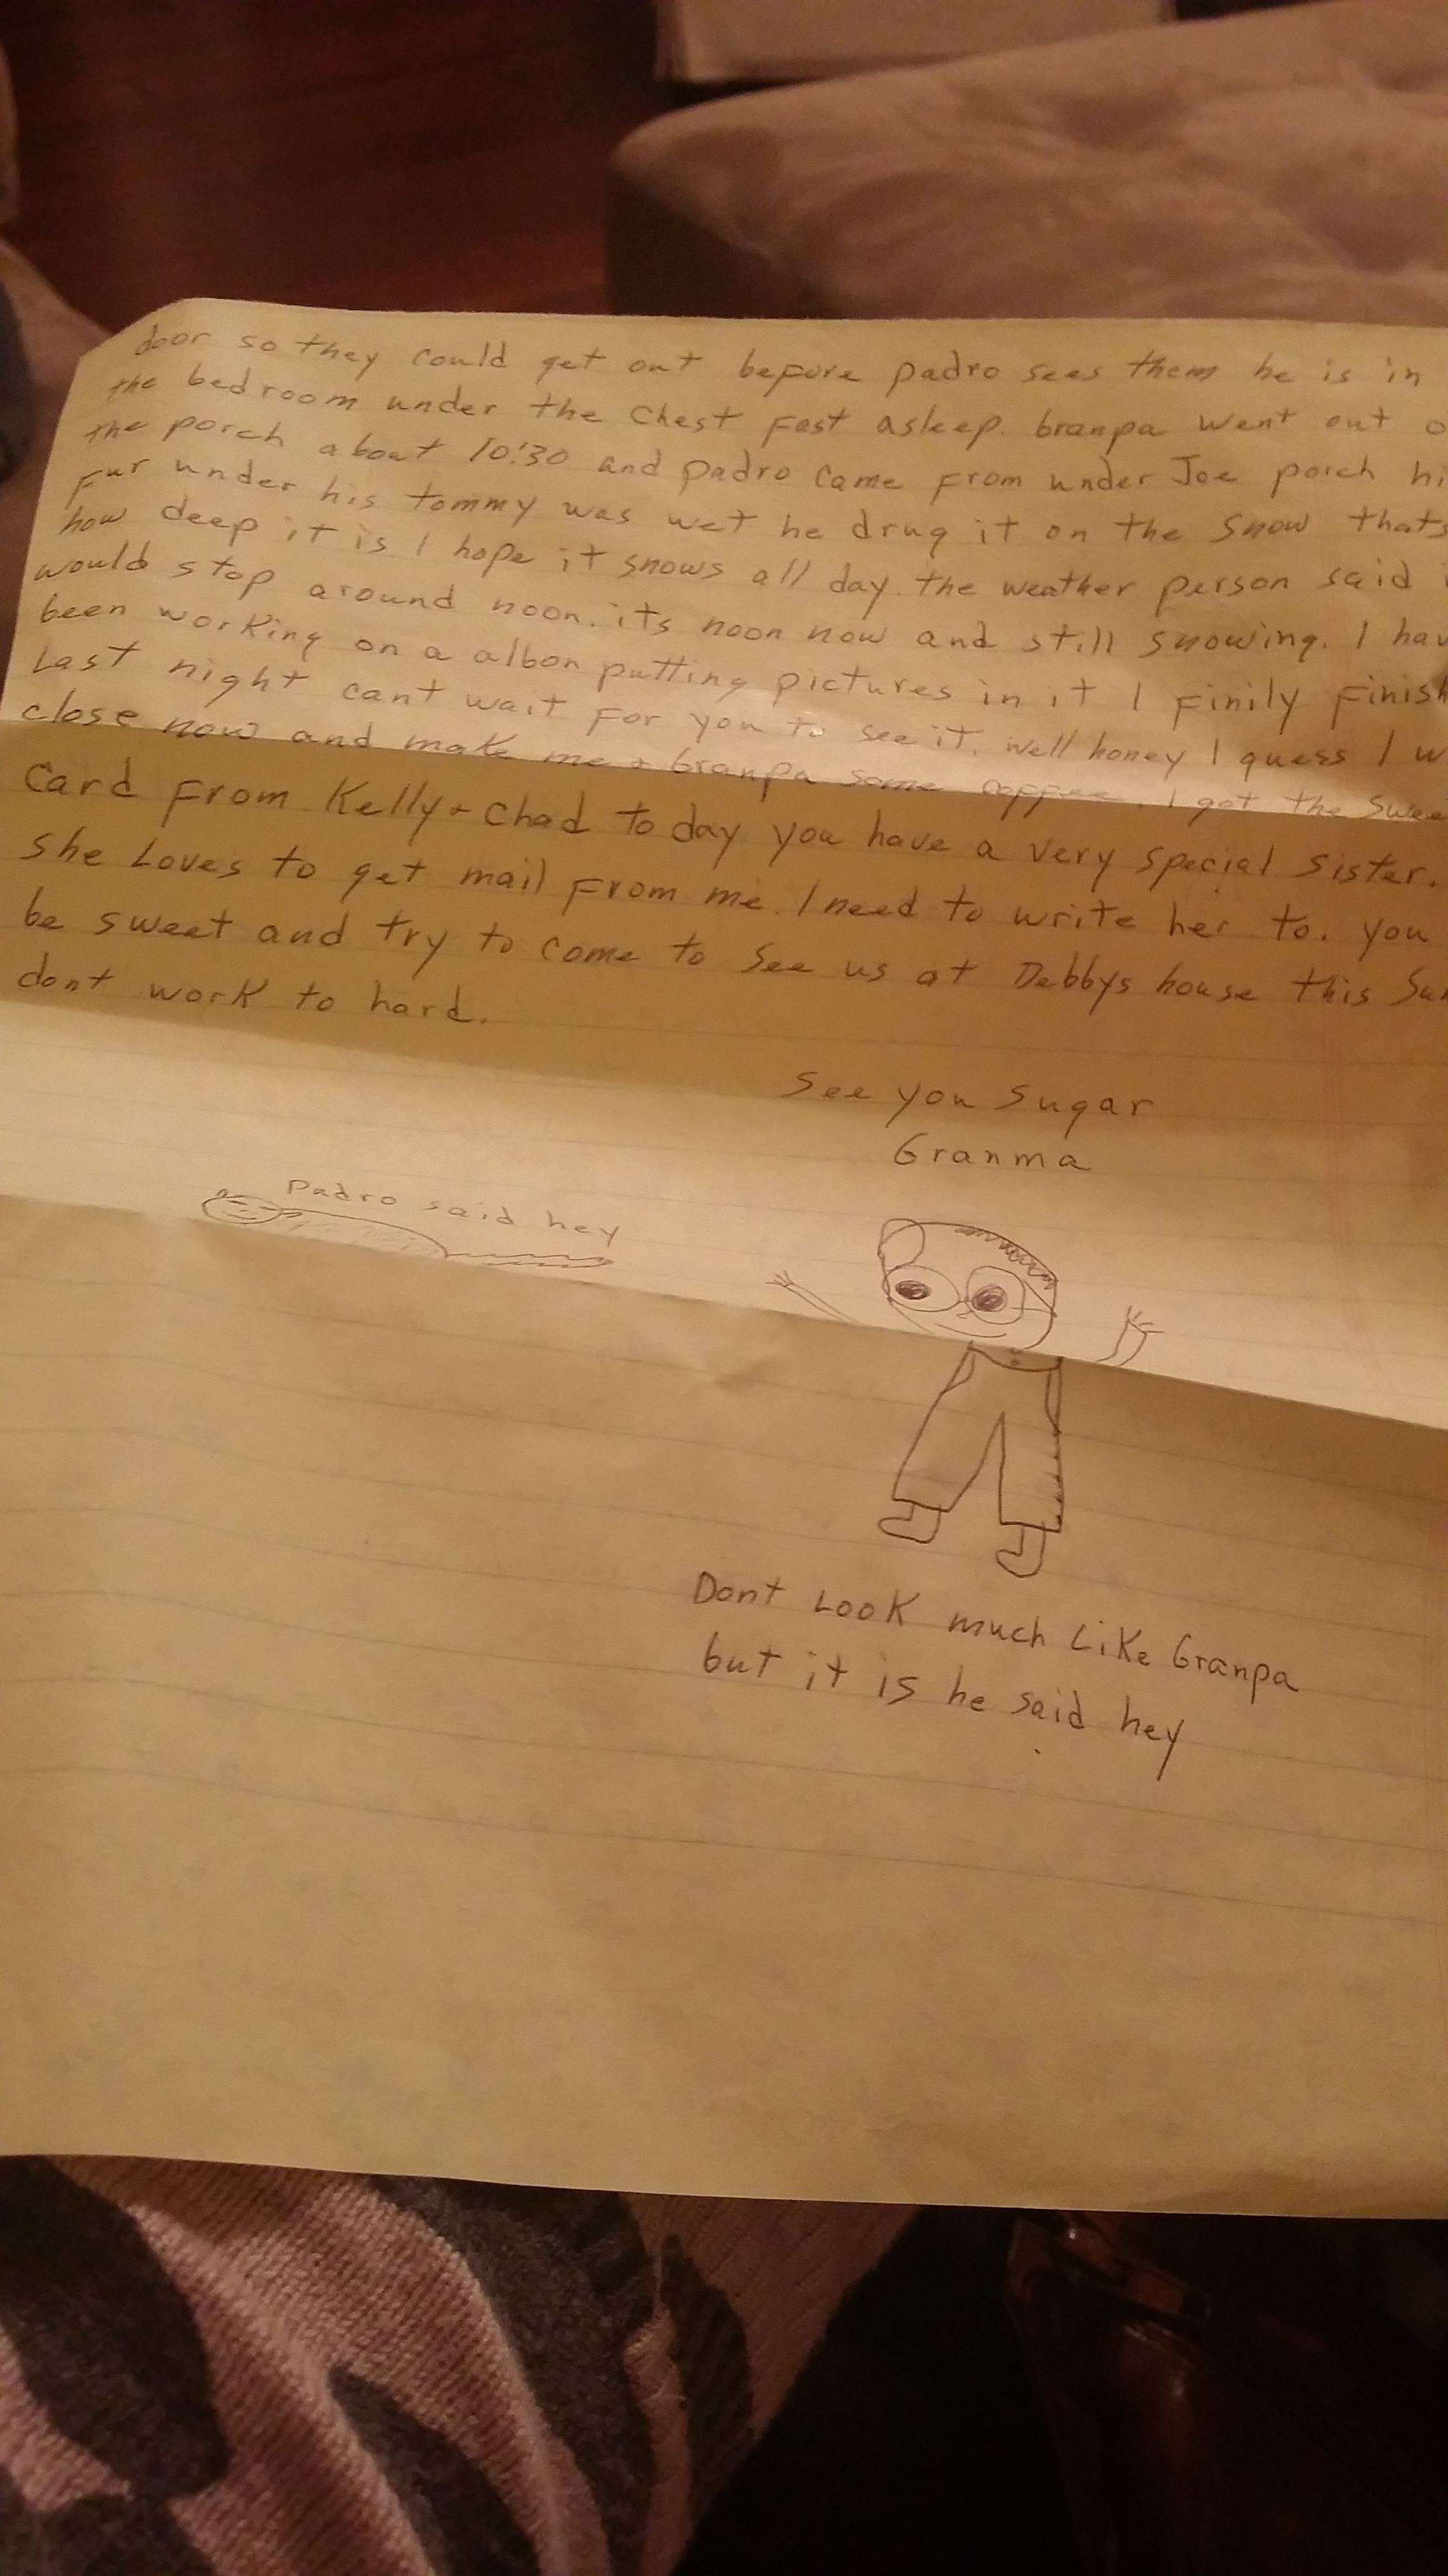 door so they could get out before padro sees them he is in
the bedroom under the chest fast asleep. Granpa went out
the porch about 10:30 and padro came from under Joe porch
fur under his tommy was wet he drug it on the snow thats
how deep it is I hope it snows all day. the weather person said
would stop around noon. its noon now and still snowing. I
been working on a albon putting pictures in it I finily
Last night cant wait for you to see it. Well honey I guess I
close now and make me + Granpa some coffee. I got the
Card from Kelly + Chad today you have a very special sister.
She Loves to get mail from me. I need to write her to. you
be sweet and try to come to see us at Debbys house this
dont work to hard.
See you Sugar
Granma
Padro said hey
Dont Look much Like Granpa
but it is he said hey